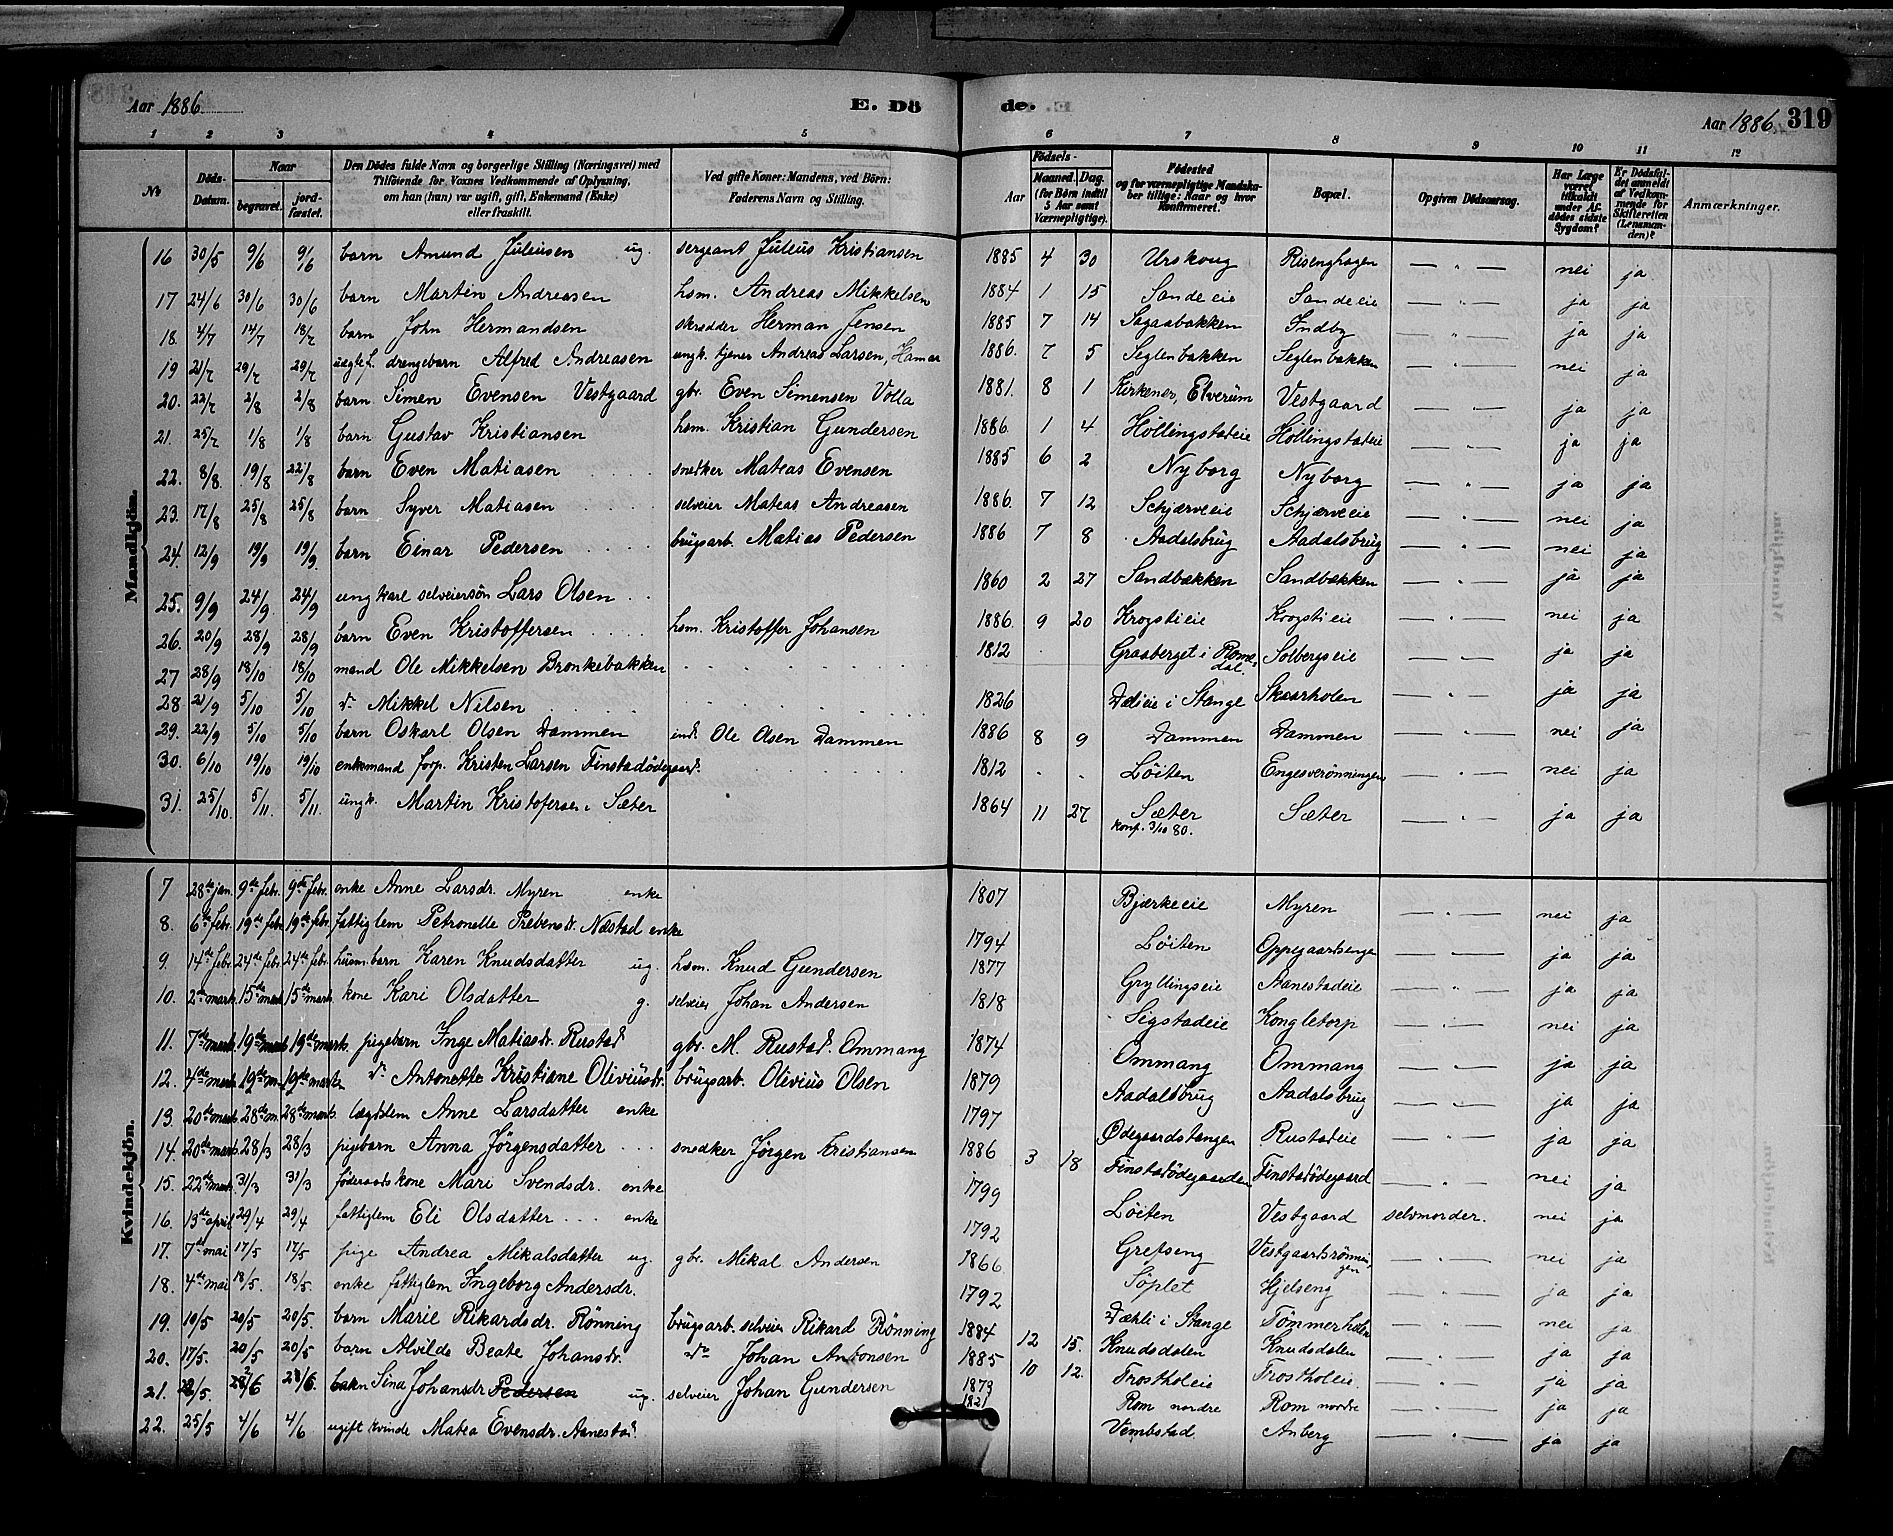 Aar 1886. E. Dö
de. Aar 1886. 319
1 2 3 4 5 6 7 8 9 10 11 12
No Döds-Datum. Naar begravet. jord-fæstet. Den Dödes fulde Navn og borgerlige Stilling (Næringsvei) med Tilföiende for Voxnes Vedkommende af Oplysning, om han (hun) var ugift, gift, Enkemand (Enke) eller fraskilt. Ved gifte Koner: Mandens, ved Börn: Faderens Navn og Stilling. Födsels- Aar Maaned. Dag. (for Börn indtil 5 Aar samt Værnepligtige). Födested og for værnepligtige Mandskaber tillige: Naar og hvor konfirmeret. Bopæl. Opgiven Dödsaarsag. Har Læge været tilkaldt under Afdödes sidste Sygdom? Er Dödsfaldet anmeldt af Vedkommende for Skifteretten (Lensmanden)? Anmærkninger.
Mandkjön.
16 30/5 9/6 9/6 barn Amund Juliusen ug. sergeant Julius Kristiansen 1885 4 30 Urskoug Risenghagen — " — nei ja
17 24/6 30/6 30/6 barn Martin Andreasen hsm. Andreas Mikkelsen 1884 1 15 Sandeeie Sandeeie — " — ja ja
18. 4/7 14/7 18/7 barn John Hermandsen skrædder Herman Jensen 1885 7 14 Sagaabakken Indby " ja ja
19 21/7 29/7 29/7 uegte f. drengebarn Alfred Andreasen ungk. tjener Andreas Larsen, Hamar 1886. 7 5 Seglenbakken Seglenbakken — " — nei ja
20. 22/7 2/8 2/8 barn Simen Evensen Vestgaard gbr. Even Simensen Volla 1881. 8 1 Kirkener, Elverum Vestgaard — " — ja ja
21. 25/7 1/8 1/8 barn Gustav Kristiansen hsm. Kristian Gundersen 1886. 1 4 Höllingstadeie Höllingstadeie — " — ja ja
22. 8/8. 19/8 22/8 barn Even Matiasen snedker Mateas Evensen 1885 6 2 Nyborg Nyborg — " — ja ja
23. 17/8 25/8 25/8 barn Syver Matiasen selveier Mateas Andreasen 1886. 7 12 Schjærveeie Schjærveeie — " — nei ja
24. 12/9 19/9 19/9. barn Einar Pedersen brugsarb. Matias Pedersen 1886 7 8 Aadalsbrug Aadalsbrug — " — nei ja
25. 9/9 24/9 24/9 ungkarl selveiersön Lars Olsen 1860 2 27 Sandbakken Sandbakken — " — ja ja
26. 20/9 28/9 28/9 barn Even Kristoffersen hsm. Kristoffer Johansen 1886. 9 20 Krogstieie Krogstieie — " — nei ja
27 28/9 18/10 18/10 mand Ole Mikkelsen Bronkebakken 1812 Graaberget i Romedal. Solbergseie — " — ja ja
28 21/9 5/10 5/10 do Mikkel Nilsen 1826 Dælieie i Stange Skaarholen — " — ja ja
29. 22/9 5/10 5/10 barn Oskarl Olsen Dammen inds. Ole Olsen Dammen 1886 8 9 Dammen Dammen — " — nei ja
30. 6/10 19/10 19/10 enkemand forp. Kristen Larsen Finstadödegaard. 1812 Löiten Engesverönningen — " — nei ja
31. 25/10 5/11. 5/11. ungk. Martin Kristofersen Sæter 1864 11 27 Sæter konf. 3/10 80. Sæter — " — ja ja
Kvindekjön.
7 28de jan. 9de febr. 9de febr. enke Anne Larsdr. Myren enke 1807 Bjærkeeie Myren — " — nei ja
8. 6te febr. 19de febr. 19de febr. fattiglem Petronelle Prebensdr. Næstad enke 1794 Löiten Oppegaardsenge — " — ja ja
9. 14de febr. 24de febr. 24de febr. husm.barn Karen Knudsdatter ug. hsm. Knud Gundersen 1877 Gryllingseie Aanestadeie — " — ja ja
10. 2de marts. 15de marts 15de marts. kone Kari Olsdatter g. selveier Johan Andersen 1818 Sigstadeie Kongletorp — " — nei ja
11. 7de marts. 19de marts 19de marts. pigebarn Inge Matiasdr. Rustad gbr. M. Rustad. Ommang 1874 Ommang Ommang — " — ja ja
12. 4de marts. 19de m. 19de marts do Antonette Kristiane Oliviusdr. brugsarb. Olivius Olsen 1879 Aadalsbrug Aadalsbrug — " — ja ja
13. 20de marts. 28de m. 28de marts. lægdslem Anne Larsdatter enke 1797 Ödegaardstangen Rustadeie — " — ja ja
14. 20de marts. 28/3 28/3 pigebarn Anna Jörgensdatter snedker Jörgen Kristiansen 1886 3 18 Finstadödegaarden Finstadödegaard — " — nei ja
15. 22de marts. 31/3 31/3 föderaadskone Mari Svendsdr. enke 1799 Löiten Vestgaard selvmorder. nei ja
16. 13de april 29/4 29/4 fattiglem Eli Olsdatter enke 1792 Grefseng Vestgaardsrönningen — " — nei ja
17. 7de mai 17/5 17/5 pige Andrea Mikalsdatter ug. gbr. Mikal Andersen 1866 Söplet Hjelseng — " — ja ja
18. 4de mai 18/5. 18/5. enke fattiglem Ingeborg Andersdr. 1792 Dæhli i Stange Tömmerholen — " — nei ja
19. 10/5 20/5 20/5. barn Marie Rikardsdr. Rönning brugsarb. selveier Rikard Rönning 1884 12 15. Knudsdalen Knudsdalen — " — ja ja
20. 17/5. 20/5 20/5 barn Alvilde Beate Johansdr. do Johan Antonsen 1885 10 12. Frostholeie Frostholeie — " — ja ja
21. 22/5. 2/6 2/6. barn Sina Johansdr. Pedersen ug. selveier Johan Gundersen 1879 Rom nordre Rom nordre — " — ja ja
22. 25/5 4/6 4/6 ugift kvinde Matea Evensdr. Aanestad. 1821 Vembstad Anberg — " — ja ja